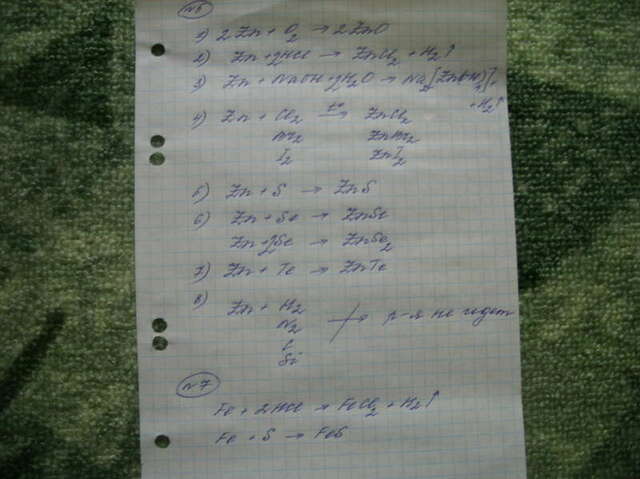 №5
1) 2Zn + O₂ → 2ZnO
2) Zn + 2HCl → ZnCl₂ + H₂↑
3) Zn + NaOH + 2H₂O → Na₂[Zn(OH)₄] +
+ H₂↑
4) Zn + Cl₂ t° → ZnCl₂
Br₂ ZnBr₂
I₂ ZnI₂
5) Zn + S → ZnS
6) Zn + Se → ZnSe
Zn + 2Se → ZnSe₂
7) Zn + Te → ZnTe
8) Zn + H₂
N₂ р-я не идет
C
Si
№7
Fe + 2HCl → FeCl₂ + H₂↑
Fe + S → FeS